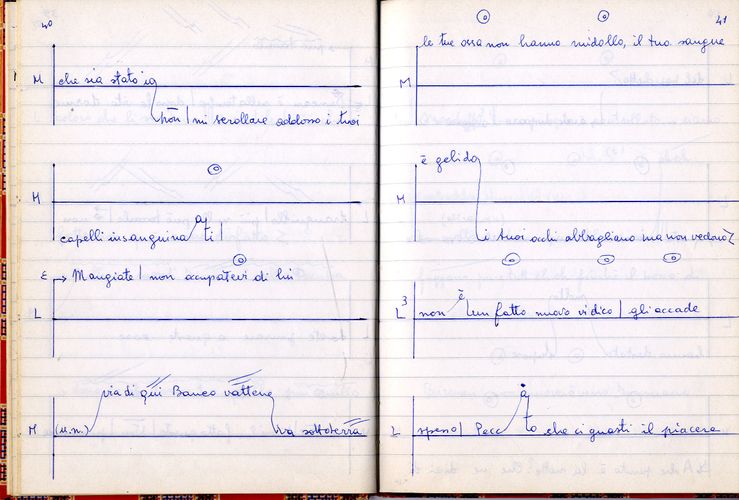 40
M che sia stato io
non | mi scrollare addosso i tuoi
M
capelli insanguina a ti |
Mangiate | non occupatevi di lui
L
via di qui Banco vattene
M (u.m.) va sottoterra
41
le tue ossa non hanno midollo, il tuo sangue
M
è gelido
M
i tuoi occhi abbagliano ma non vedono?
L 3 non è un fatto nuovo vi dico | gli accade
L spesso | Pecc a to che ci guasti il piacere